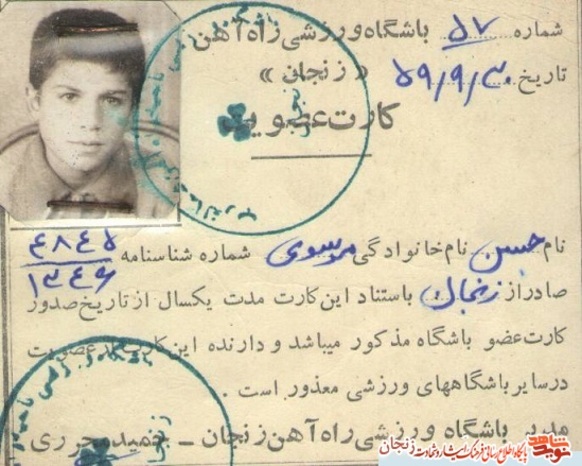 شماره ۵۷ باشگاه ورزشی راه آهن
تاریخ ۵۹/۹/۳۰ « زنجان »
کارت عضویت
نام حسن نام خانوادگی موسوی شماره شناسنامه ۴۸۴۵
۱۳۴۶
صادر از زنجان باستناد این کارت مدت یکسال از تاریخ صدور
کارت عضو باشگاه مذکور میباشد و دارنده این کارت از عضویت
در سایر باشگاههای ورزشی معذور است .
مدیر باشگاه ورزشی راه آهن زنجان -
نوید شاهد
پایگاه اطلاع رسانی فرهنگ ایثار و شهادت زنجان